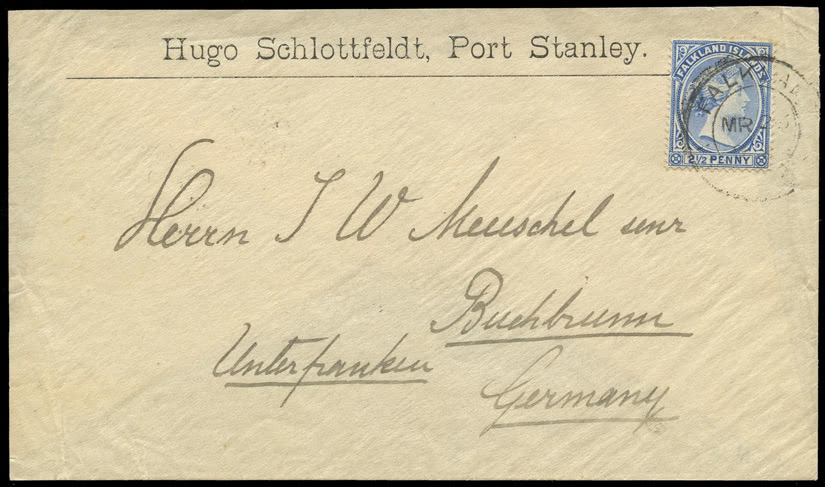 Hugo Schlottfeldt, Port Stanley.
FALKLAND ISLANDS
MR
2½ PENNY
Herrn J W Meuschel senr
Buchbrunn
Unterfranken
Germany